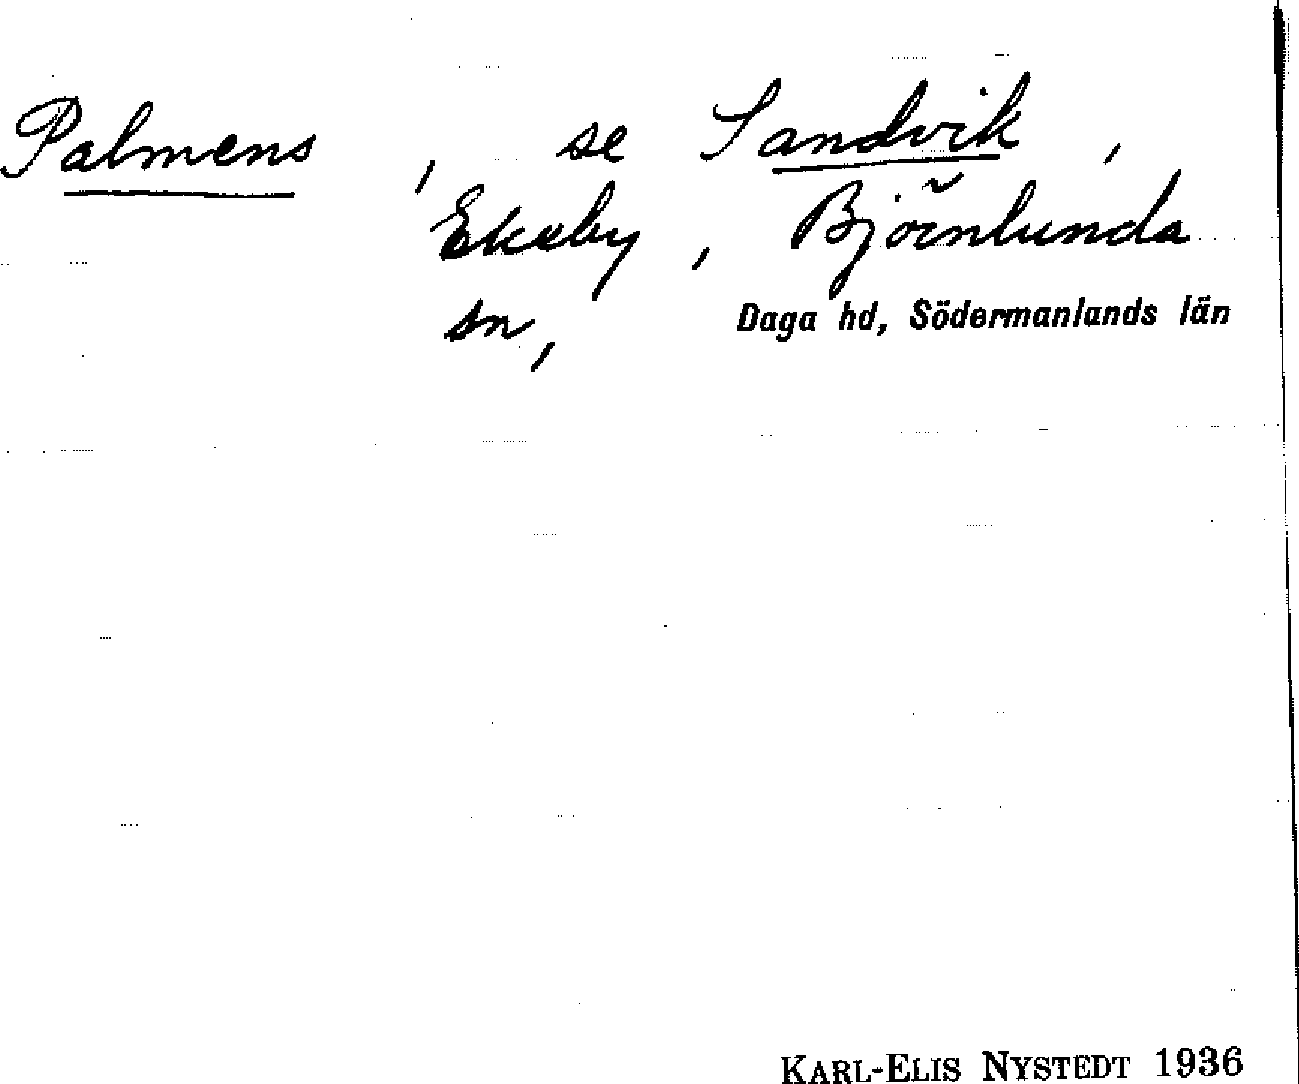 Palmens, se Sandvik,
Ekeby, Björnlunda
sn, Daga hd, Södermanlands län
KARL-ELIS NYSTEDT 1936